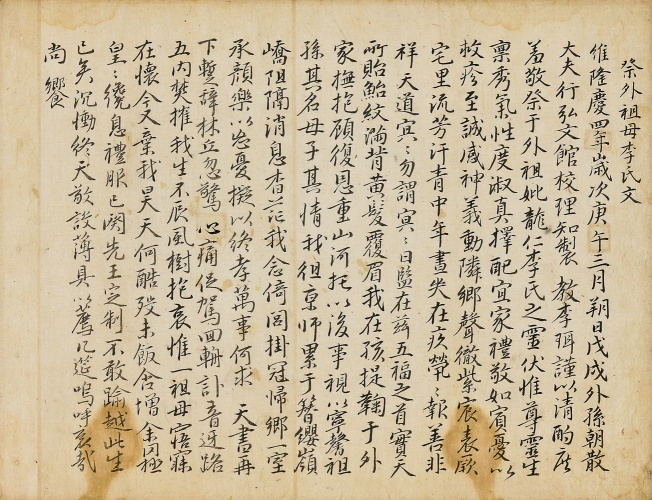 祭外祖母李氏文
維隆慶四年歲次庚午三月朔日戊戌外孫朝散
大夫行弘文館校理知製 教李珥謹以淸酌庶
羞敬祭于外祖妣龍仁李氏之靈伏惟尊靈生
稟秀氣性度淑眞擇配宜家禮敬如賓憂以
救疹至誠感神義動隣鄉聲徹紫宸表厥
宅里流芳汗靑中年晝失在疚煢〻報善非
祥天道冥〻勿謂冥〻日監在玆五福之首實天
所貽鮐紋淪背黃髮覆眉我在孩提鞠于外
家撫抱顧復恩重山河托以後事視以寧馨祖
孫其名母子其情我徂京師累于簪纓嶺
嶠阻隔消息杳茫我念倚閭掛冠歸鄉一室
承顔樂以忘憂擬以終孝萬事何求 天書再
下蹔辭林丘忽驚心痛促駕回輈訃音迓路
五內焚摧我生不辰風樹抱哀惟一祖母寤寐
在懷今又棄我昊天何酷歿未飯含憎余罔極
皇〻纔息禮服已闋先王定制不敢踰越此生
已矣沉慟終天敬設薄具以薦几筵嗚呼哀哉
尙饗